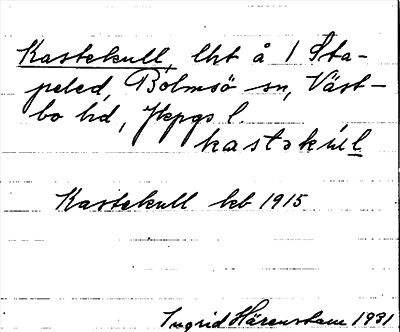 Kastekull, lht å 1 Sta-
peled, Bolmsö sn, Väst-
bo hd, Jkpgs l.
kastəkul̲l̲
Kastekull kb 1915
Ingrid Härenstam 1931